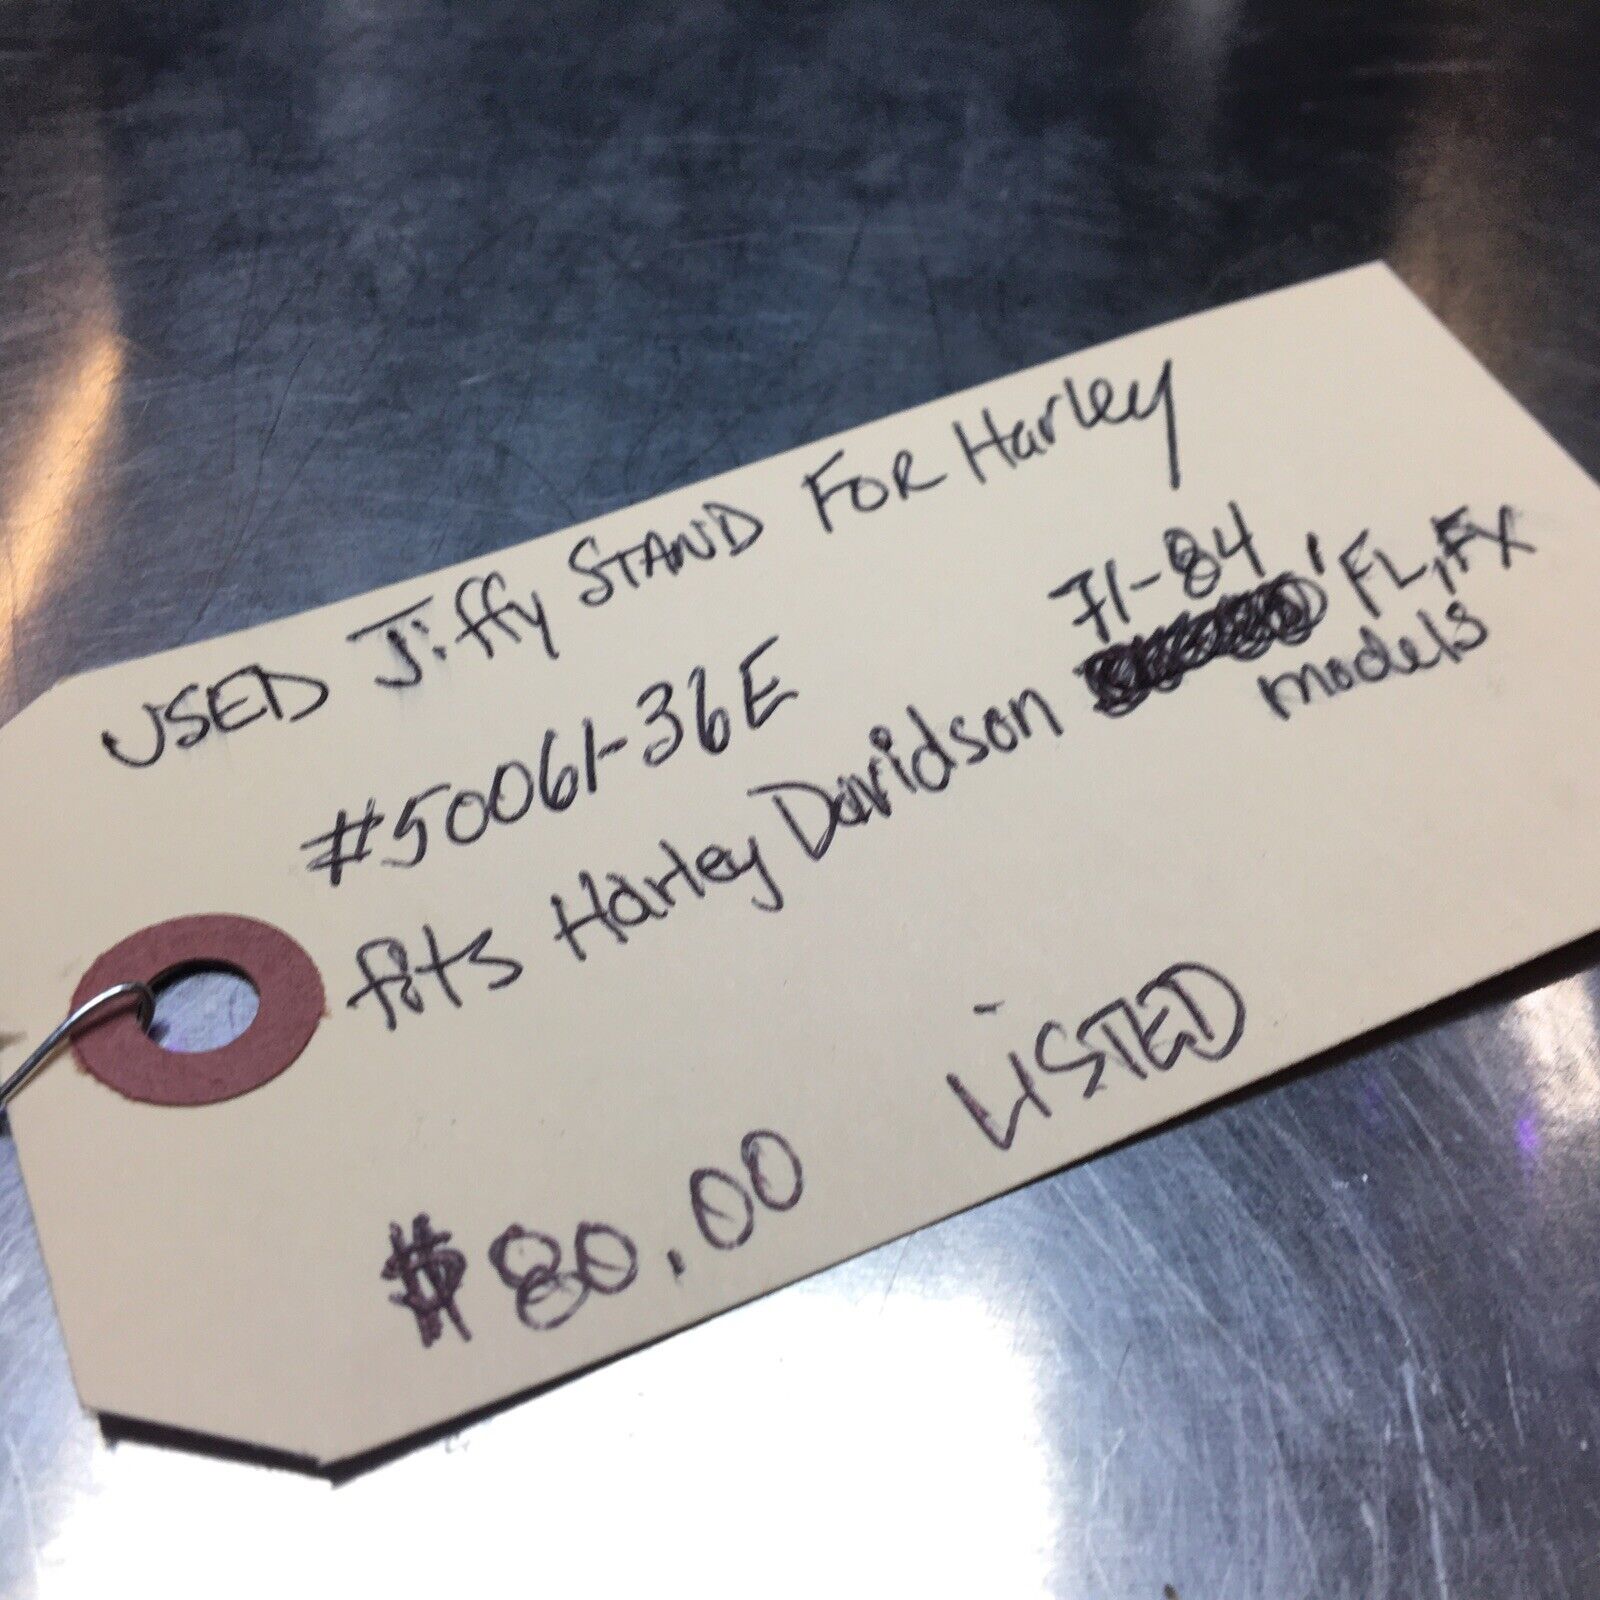 USED Jiffy STAND FOR Harley
#50061-36E
71-84
fits Harley Davidson ' FL, FX
models
$80.00 LISTED